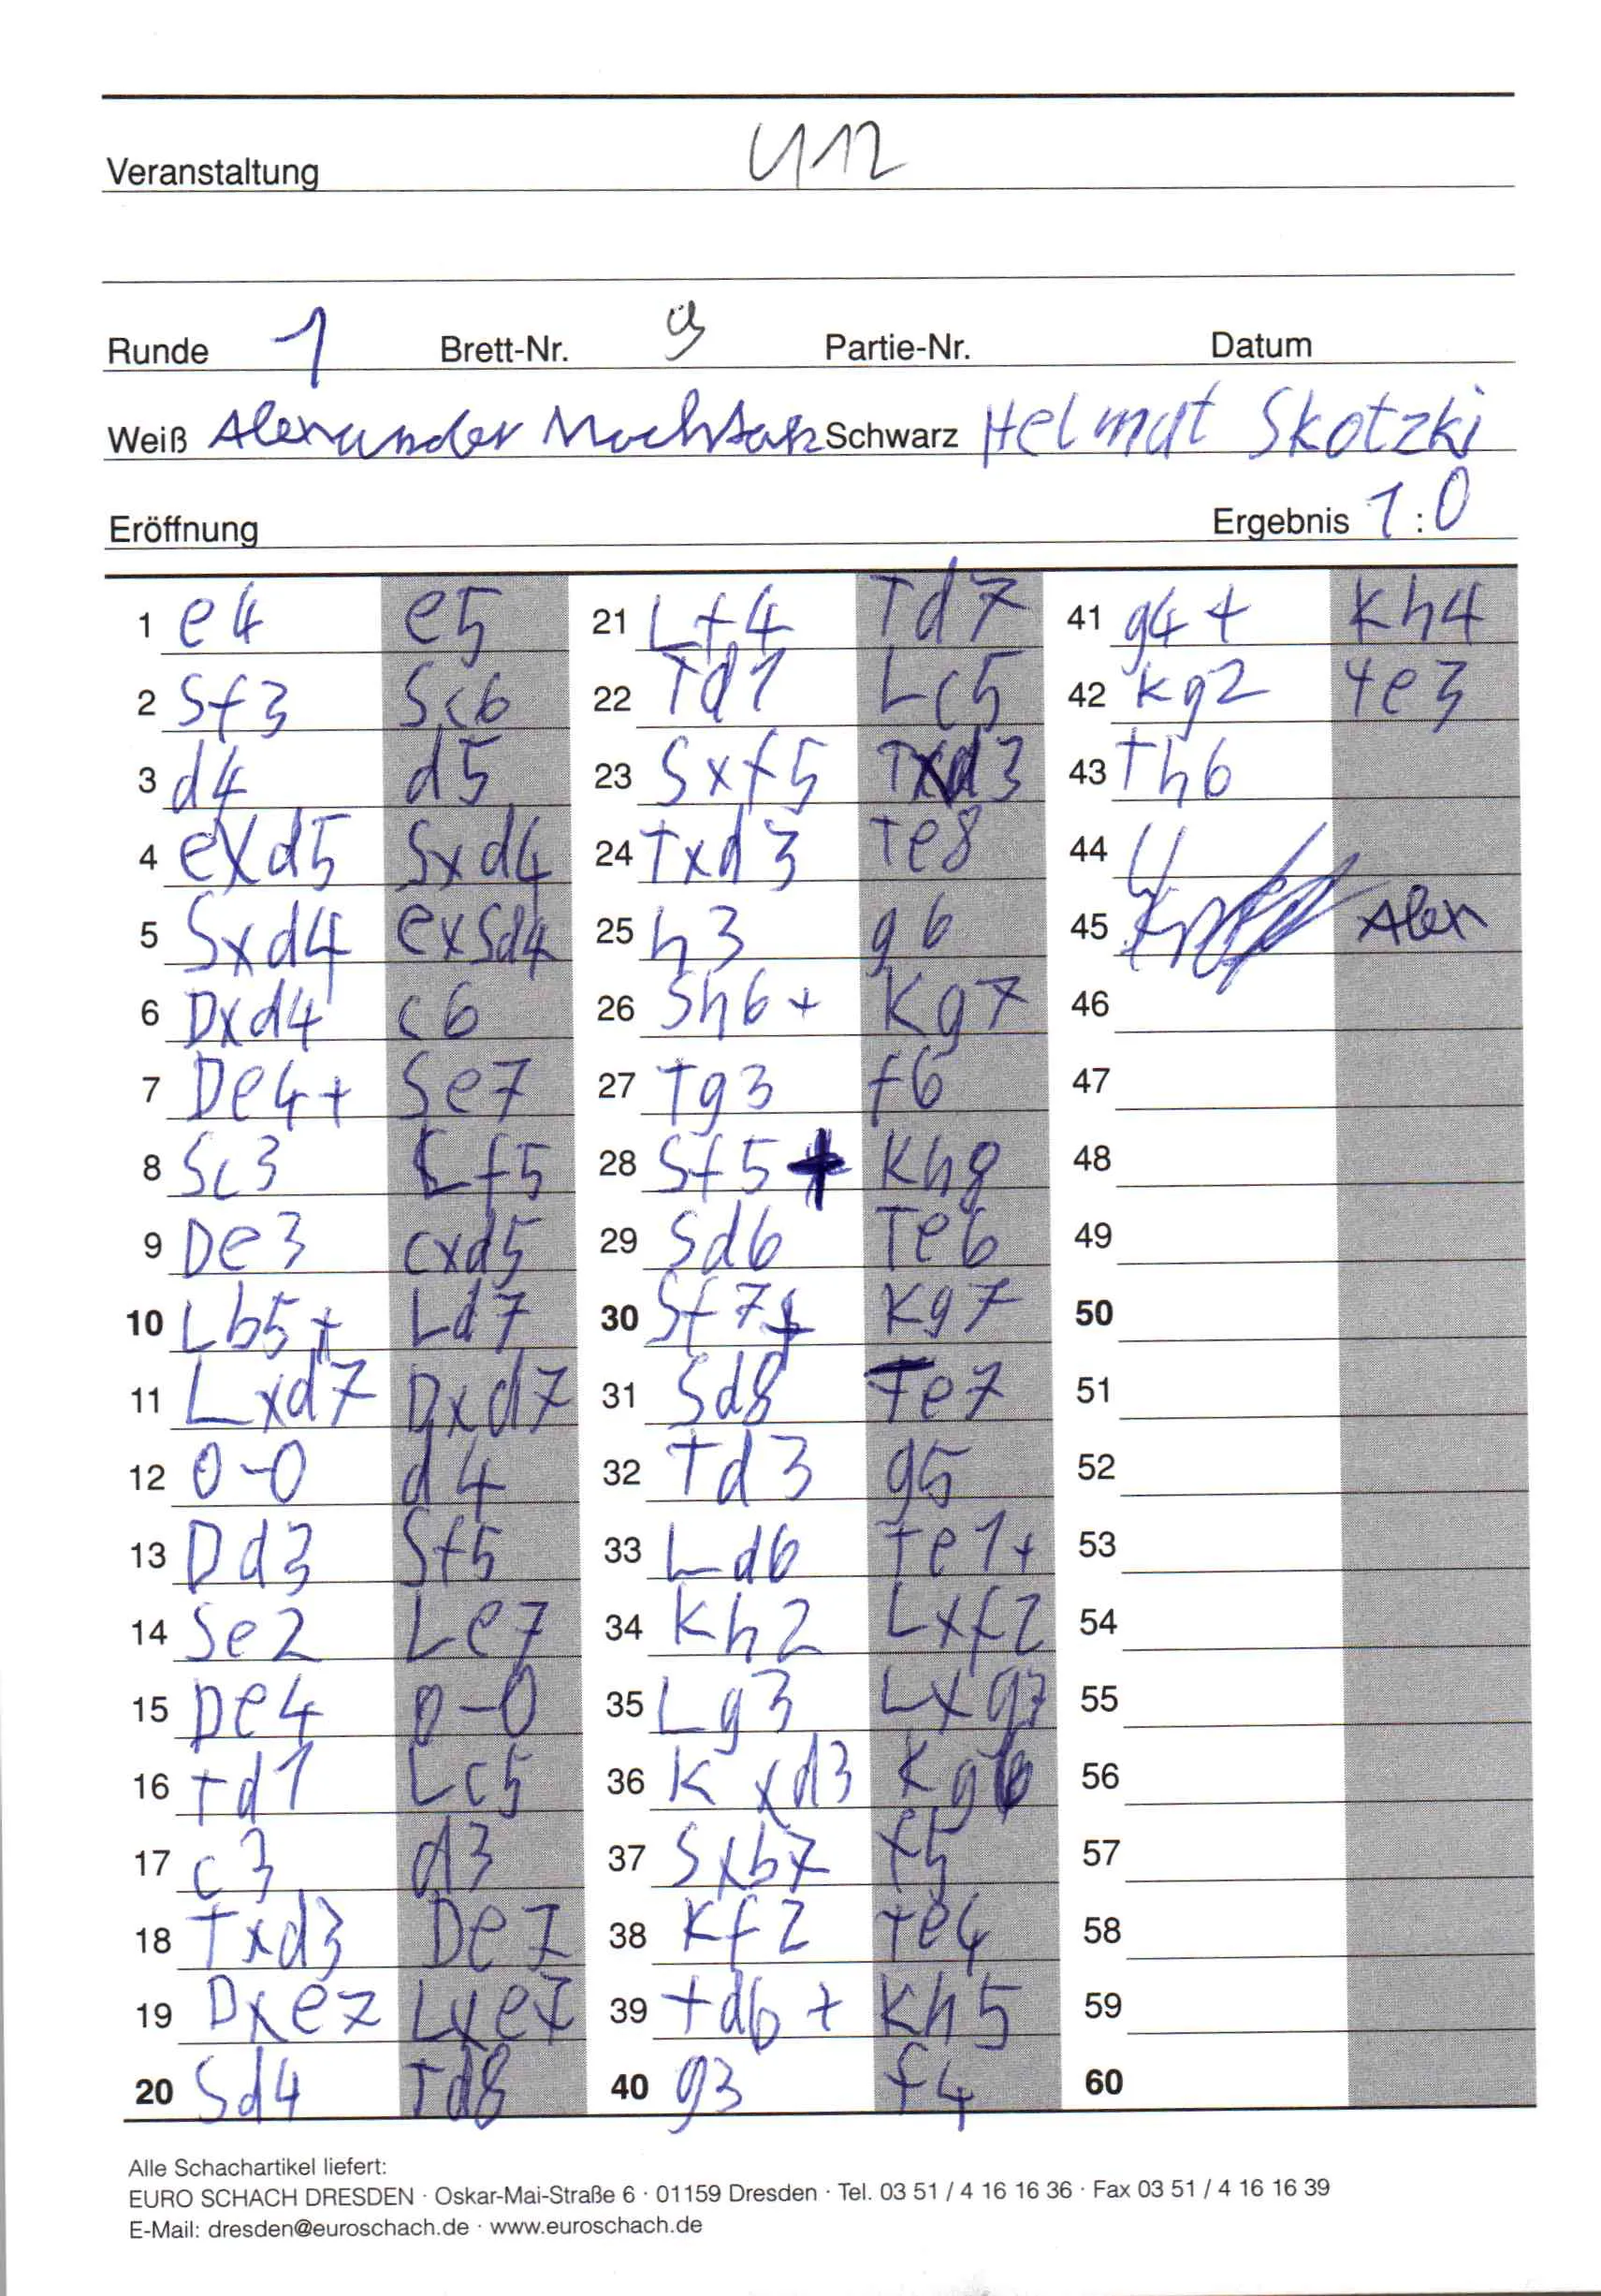 Veranstaltung U12
Runde 1 Brett-Nr. 9 Partie-Nr. Datum
Weiß Alexander Schwarz Helmut Skotzki
Eröffnung Ergebnis 1:0
1 e4 e5
2 Sf3 Sc6
3 d4 d5
4 exd5 Sxd4
5 Sxd4 exSd4
6 Dxd4 c6
7 De4+ Se7
8 Sc3 Lf5
9 De3 cxd5
10 Lb5+ Ld7
11 Lxd7 Dxd7
12 0-0 d4
13 Dd3 Sf5
14 Se2 Le7
15 De4 0-0
16 Td1 Lc5
17 c3 d3
18 Txd3 De7
19 Dxe7 Lxe7
20 Sd4 Td8
21 Lf4 Td7
22 Td1 Lc5
23 Sxf5 Txd3
24 Txd3 Te8
25 h3 g6
26 Sh6+ Kg7
27 Tg3 f6
28 Sf5+ Kh8
29 Sd6 Te6
30 Sf7+ Kg7
31 Sd8 Te7
32 Td3 g5
33 Ld6 Te1+
34 Kh2 Lxf2
35 Lg3 Lxg3
36 Kxd3 Kg6
37 Sxb7 f5
38 Kf2 Te4
39 Td6+ Kh5
40 g3 f4
41 g4+ Kh4
42 Kg2 Te3
43 Th6
44
45 Alex
46
47
48
49
50
51
52
53
54
55
56
57
58
59
60
Alle Schachartikel liefert:
EURO SCHACH DRESDEN · Oskar-Mai-Straße 6 · 01159 Dresden · Tel. 03 51 / 4 16 16 36 · Fax 03 51 / 4 16 16 39
E-Mail: dresden@euroschach.de · www.euroschach.de